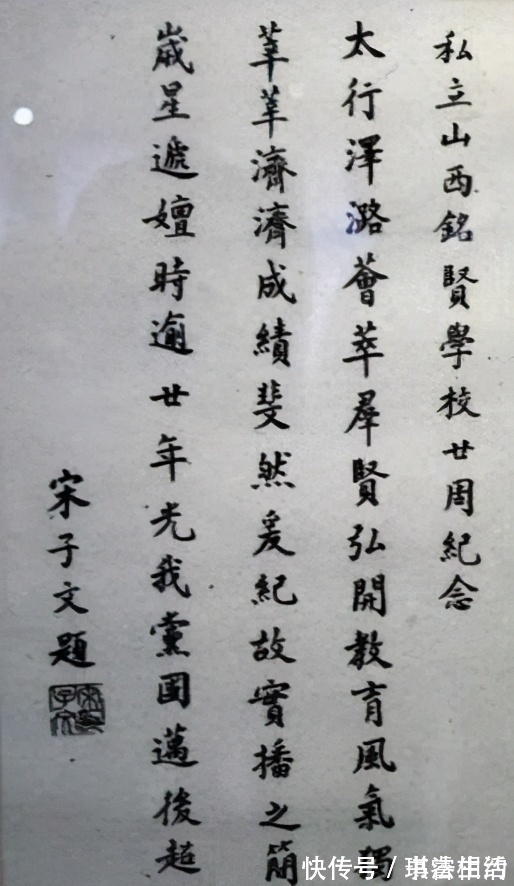 私立山西銘賢學校廿周紀念
太行澤潞薈萃羣賢弘開教育風氣獨
莘莘濟濟成績斐然爰紀故實播之簡
歲星遞嬗時逾廿年光我黨國邁後超
宋子文題
快传号/琪